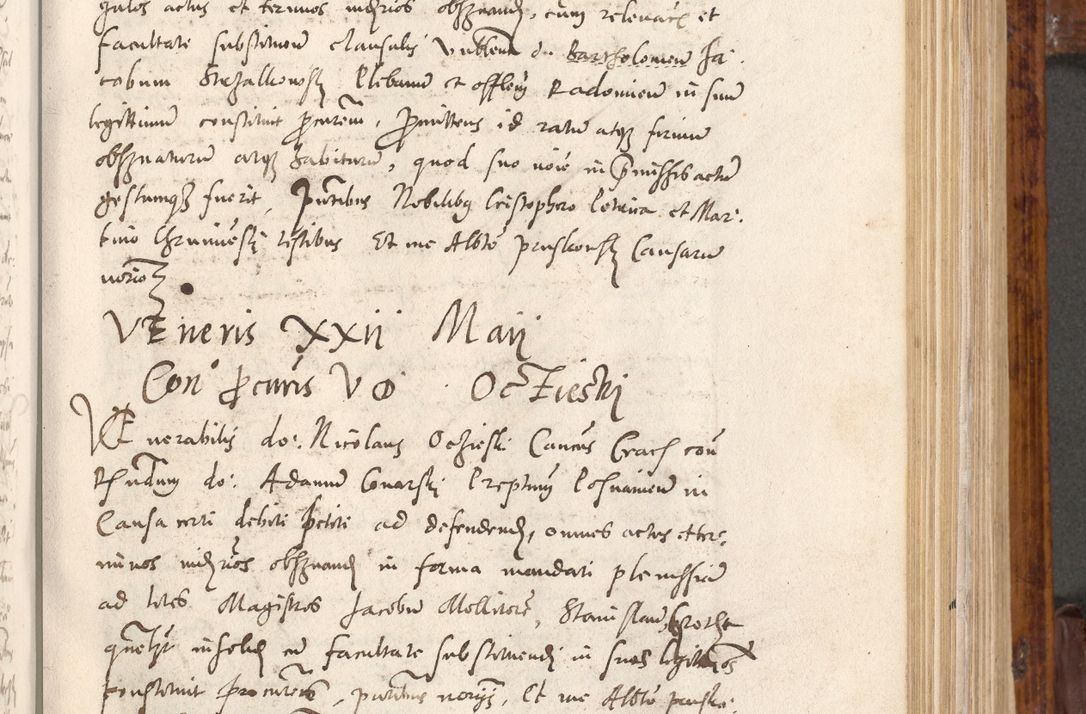 gulos actus et terminos iudiciarios observandum, cum relevatione et
facultate substituendi clausulis Venerabilem dn Bartholomeum Ja:
cobum Strzalkowski Plebanum et officialem Radomien in suum
legittimum constituit procuratorem, Promittens id ratum atque firmum
observaturum atque habiturum, quod suo noie in præmissis actum
gestumque fuerit, Pntibus Nobilibus Cristophoro et Mar:
tino testibus Et me Albto Pruskowski Causarum
notario
Veneris XXII Maij
Con° procuris V D Oczieski
Venerabilis do: Nicolaus Oczieski Cancus Crac cou
Rndum do: Adamum Conarski Preptum Posnanien in
Causa certi debiti petite ad defendendum, omnes actus et ter:
minos iudiciarios observandum in forma mandati plenissime
ad lites Magistros Jacobum Stanislaum
quemlibet insolidum cum facultate substituendi in suos legittimos
constituit procuratores, pntibus notarijs, Et me Albto Prusko: